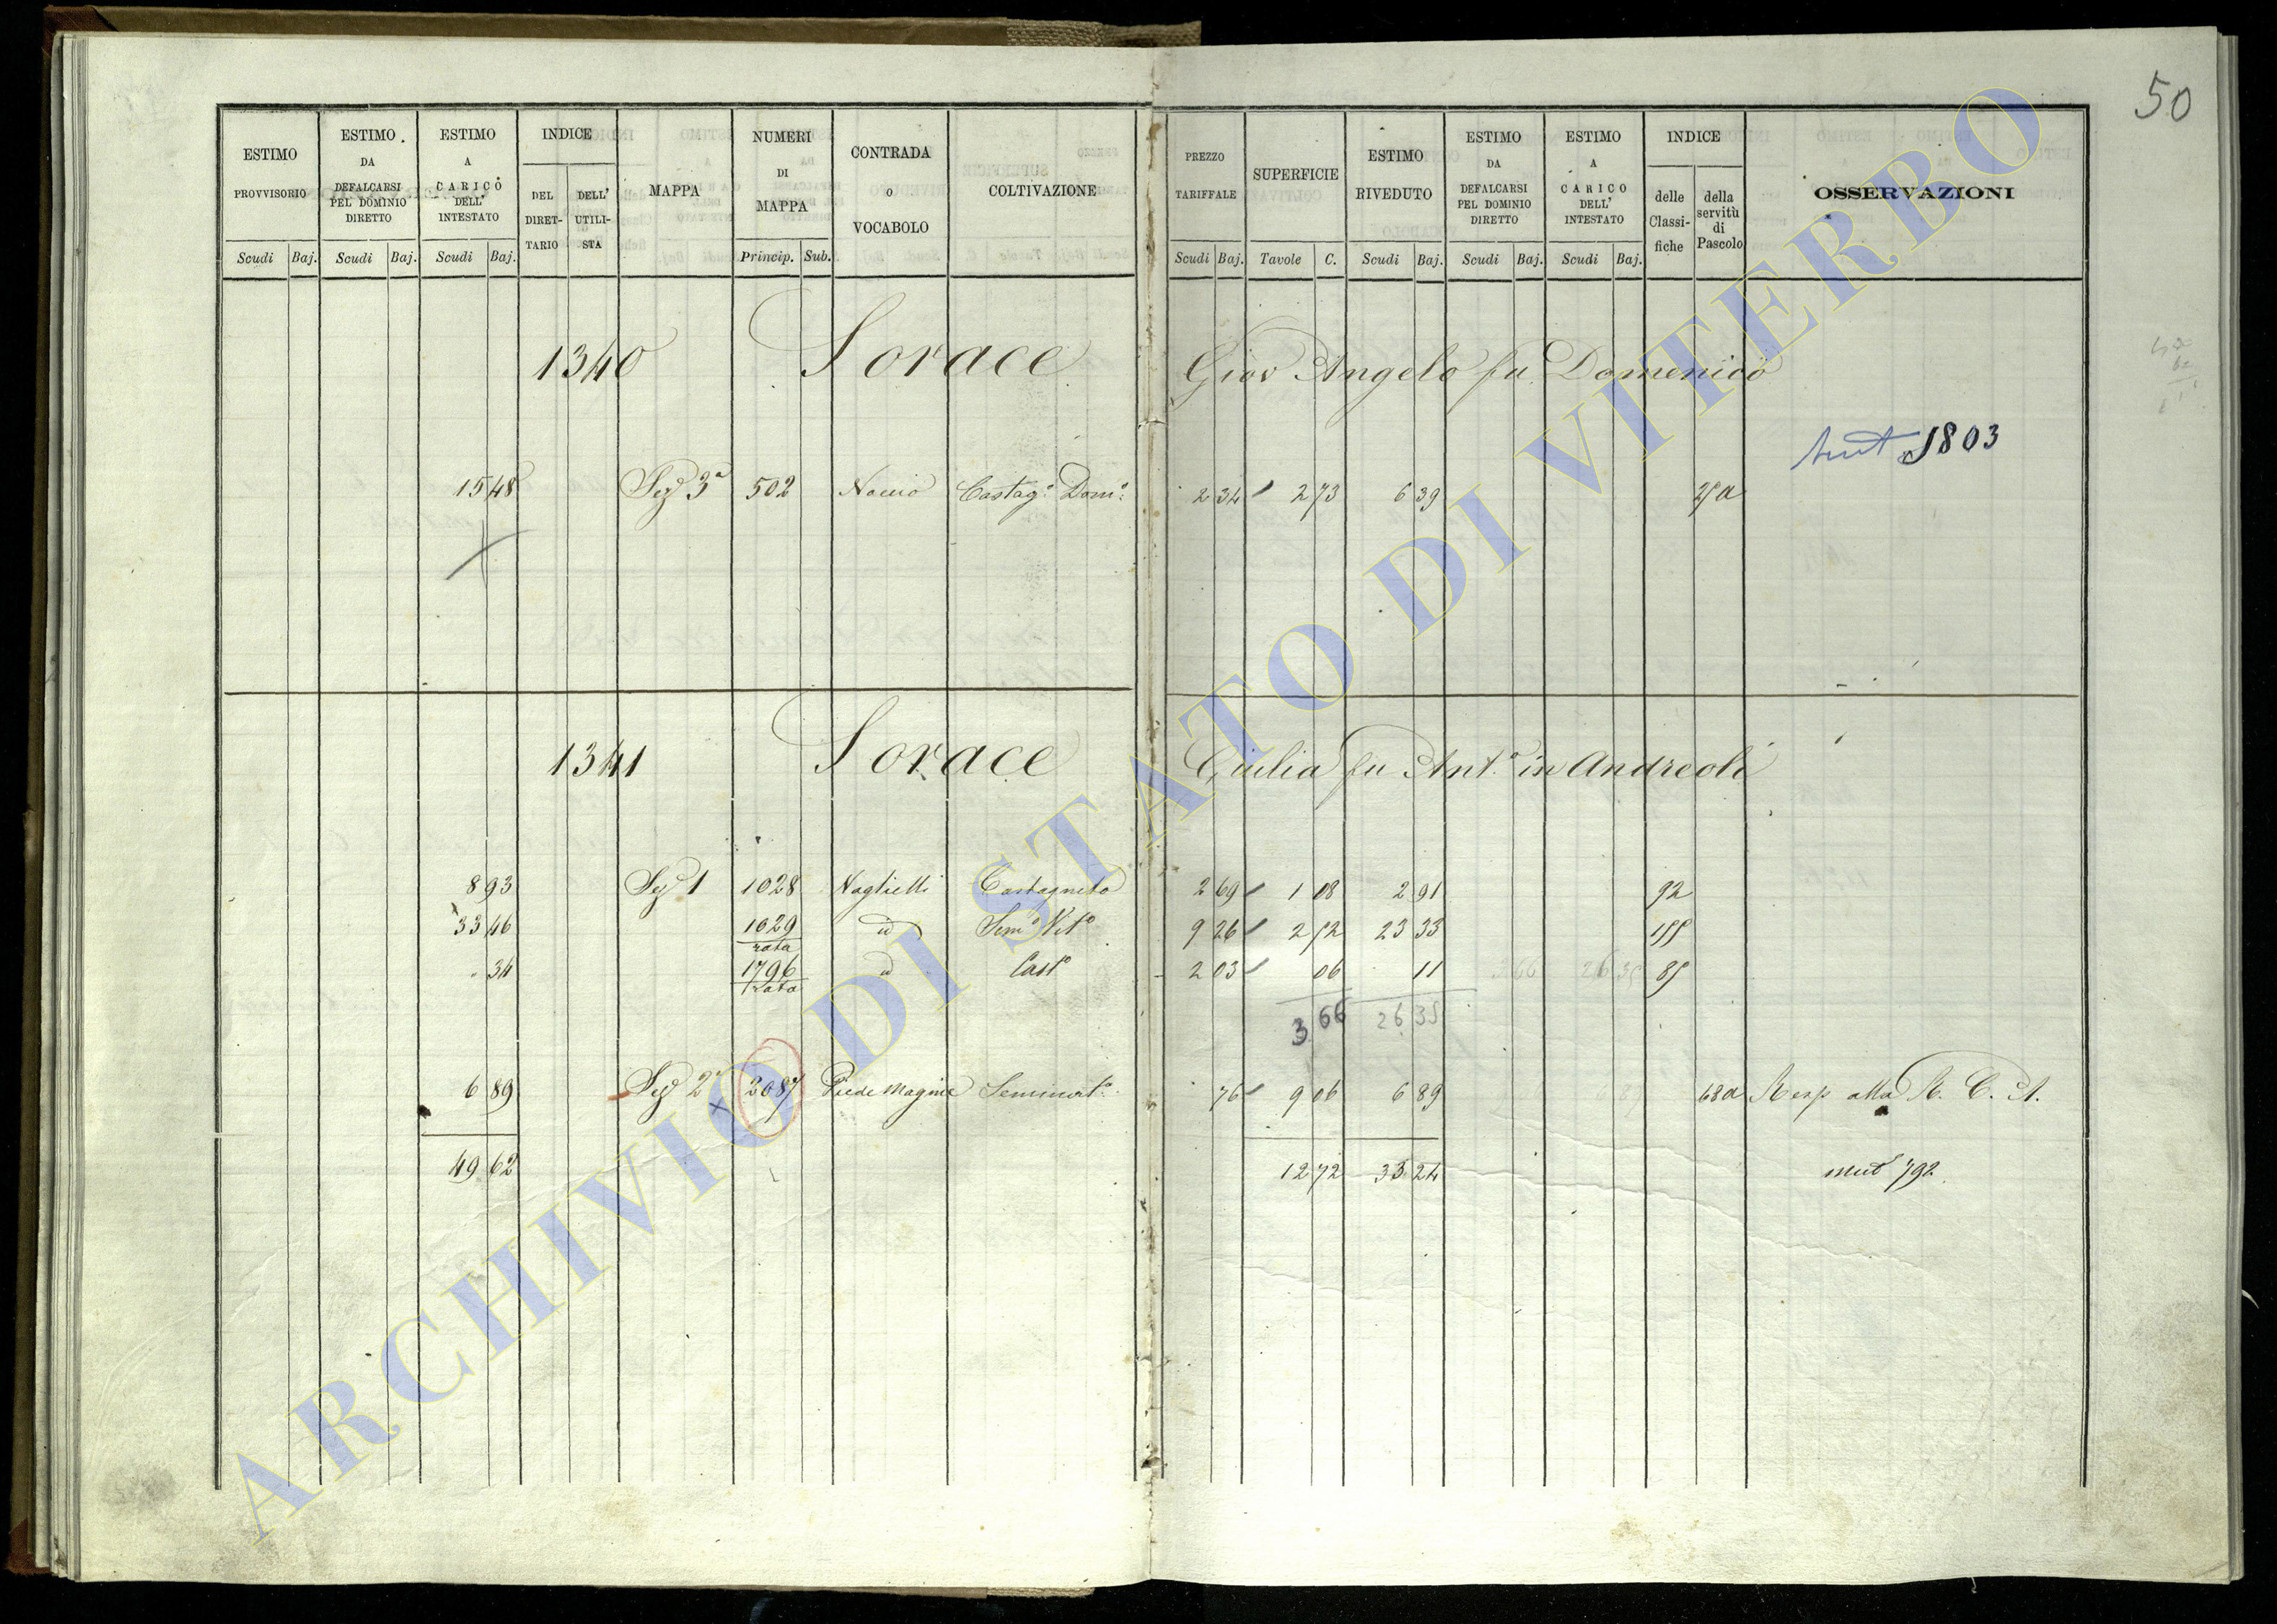 50
ESTIMO PROVVISORIO
ESTIMO DA DEFALCARSI PEL DOMINIO DIRETTO
ESTIMO A CARICO DELL' INTESTATO
INDICE
DEL DIRET-TARIO
DELL' UTILI-STA
MAPPA
NUMERI DI MAPPA
CONTRADA o VOCABOLO
COLTIVAZIONE
PREZZO TARIFFALE
SUPERFICIE
ESTIMO RIVEDUTO
ESTIMO DA DEFALCARSI PEL DOMINIO DIRETTO
ESTIMO A CARICO DELL' INTESTATO
INDICE
delle Classi-fiche
della servitù di Pascolo
OSSERVAZIONI
Scudi Baj. Scudi Baj. Scudi Baj. Princip. Sub. Scudi Baj. Tavole C. Scudi Baj. Scudi Baj. Scudi Baj.
1340 Sorace Giov Angelo fu Domenico
1803
15 48 Sez 3ª 502 Castagº Domº 2 34 2 73 6 39 25a
1341 Sorace Giulia fu Antº in Andreoli
8 93 Sez 1 1028 Naglielli Castagneto 2 69 1 08 2 91 92
33 46 1029 rata id Semº Vitº 9 26 2 52 23 33 155
34 1796 rata id Castº 2 03 06 11 85
3 66 26 35
6 89 Sez 2ª 2087 Piede Magine Seminatº 76 9 06 6 89 68a Resp alla R. C. A.
49 62 12 72 33 24 mut 792
ARCHIVIO DI STATO DI VITERBO